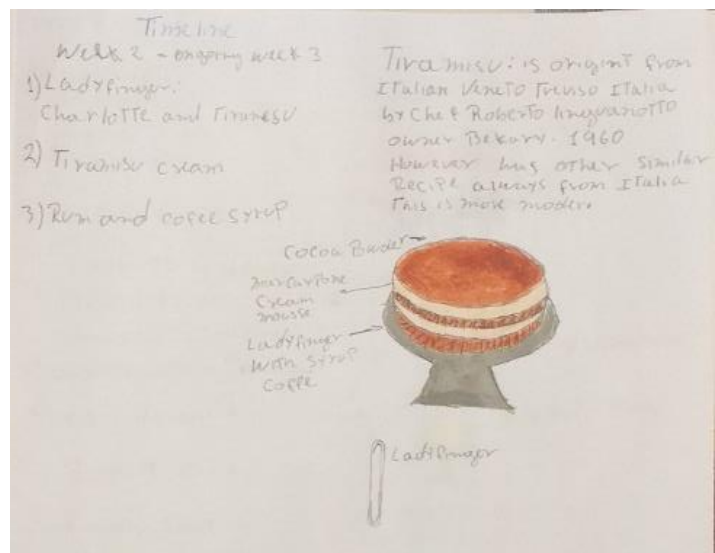 Timeline
Week 2 - ongoing week 3
1) Ladyfinger:
Charlotte and Tiramesu
2) Tiramisu cream
3) Rum and cofee syrup
Tiramisu: is origint from
Italian Veneto Treviso Italia
by Chef Roberto linguanotto
owner Bekury. 1960
However has other similar
Recipe always from Italia
This is more moder.
Cocoa Bouder
marcarpone
Cream
mousse
Ladyfinger
with syrup
Coffe
Ladyfinger